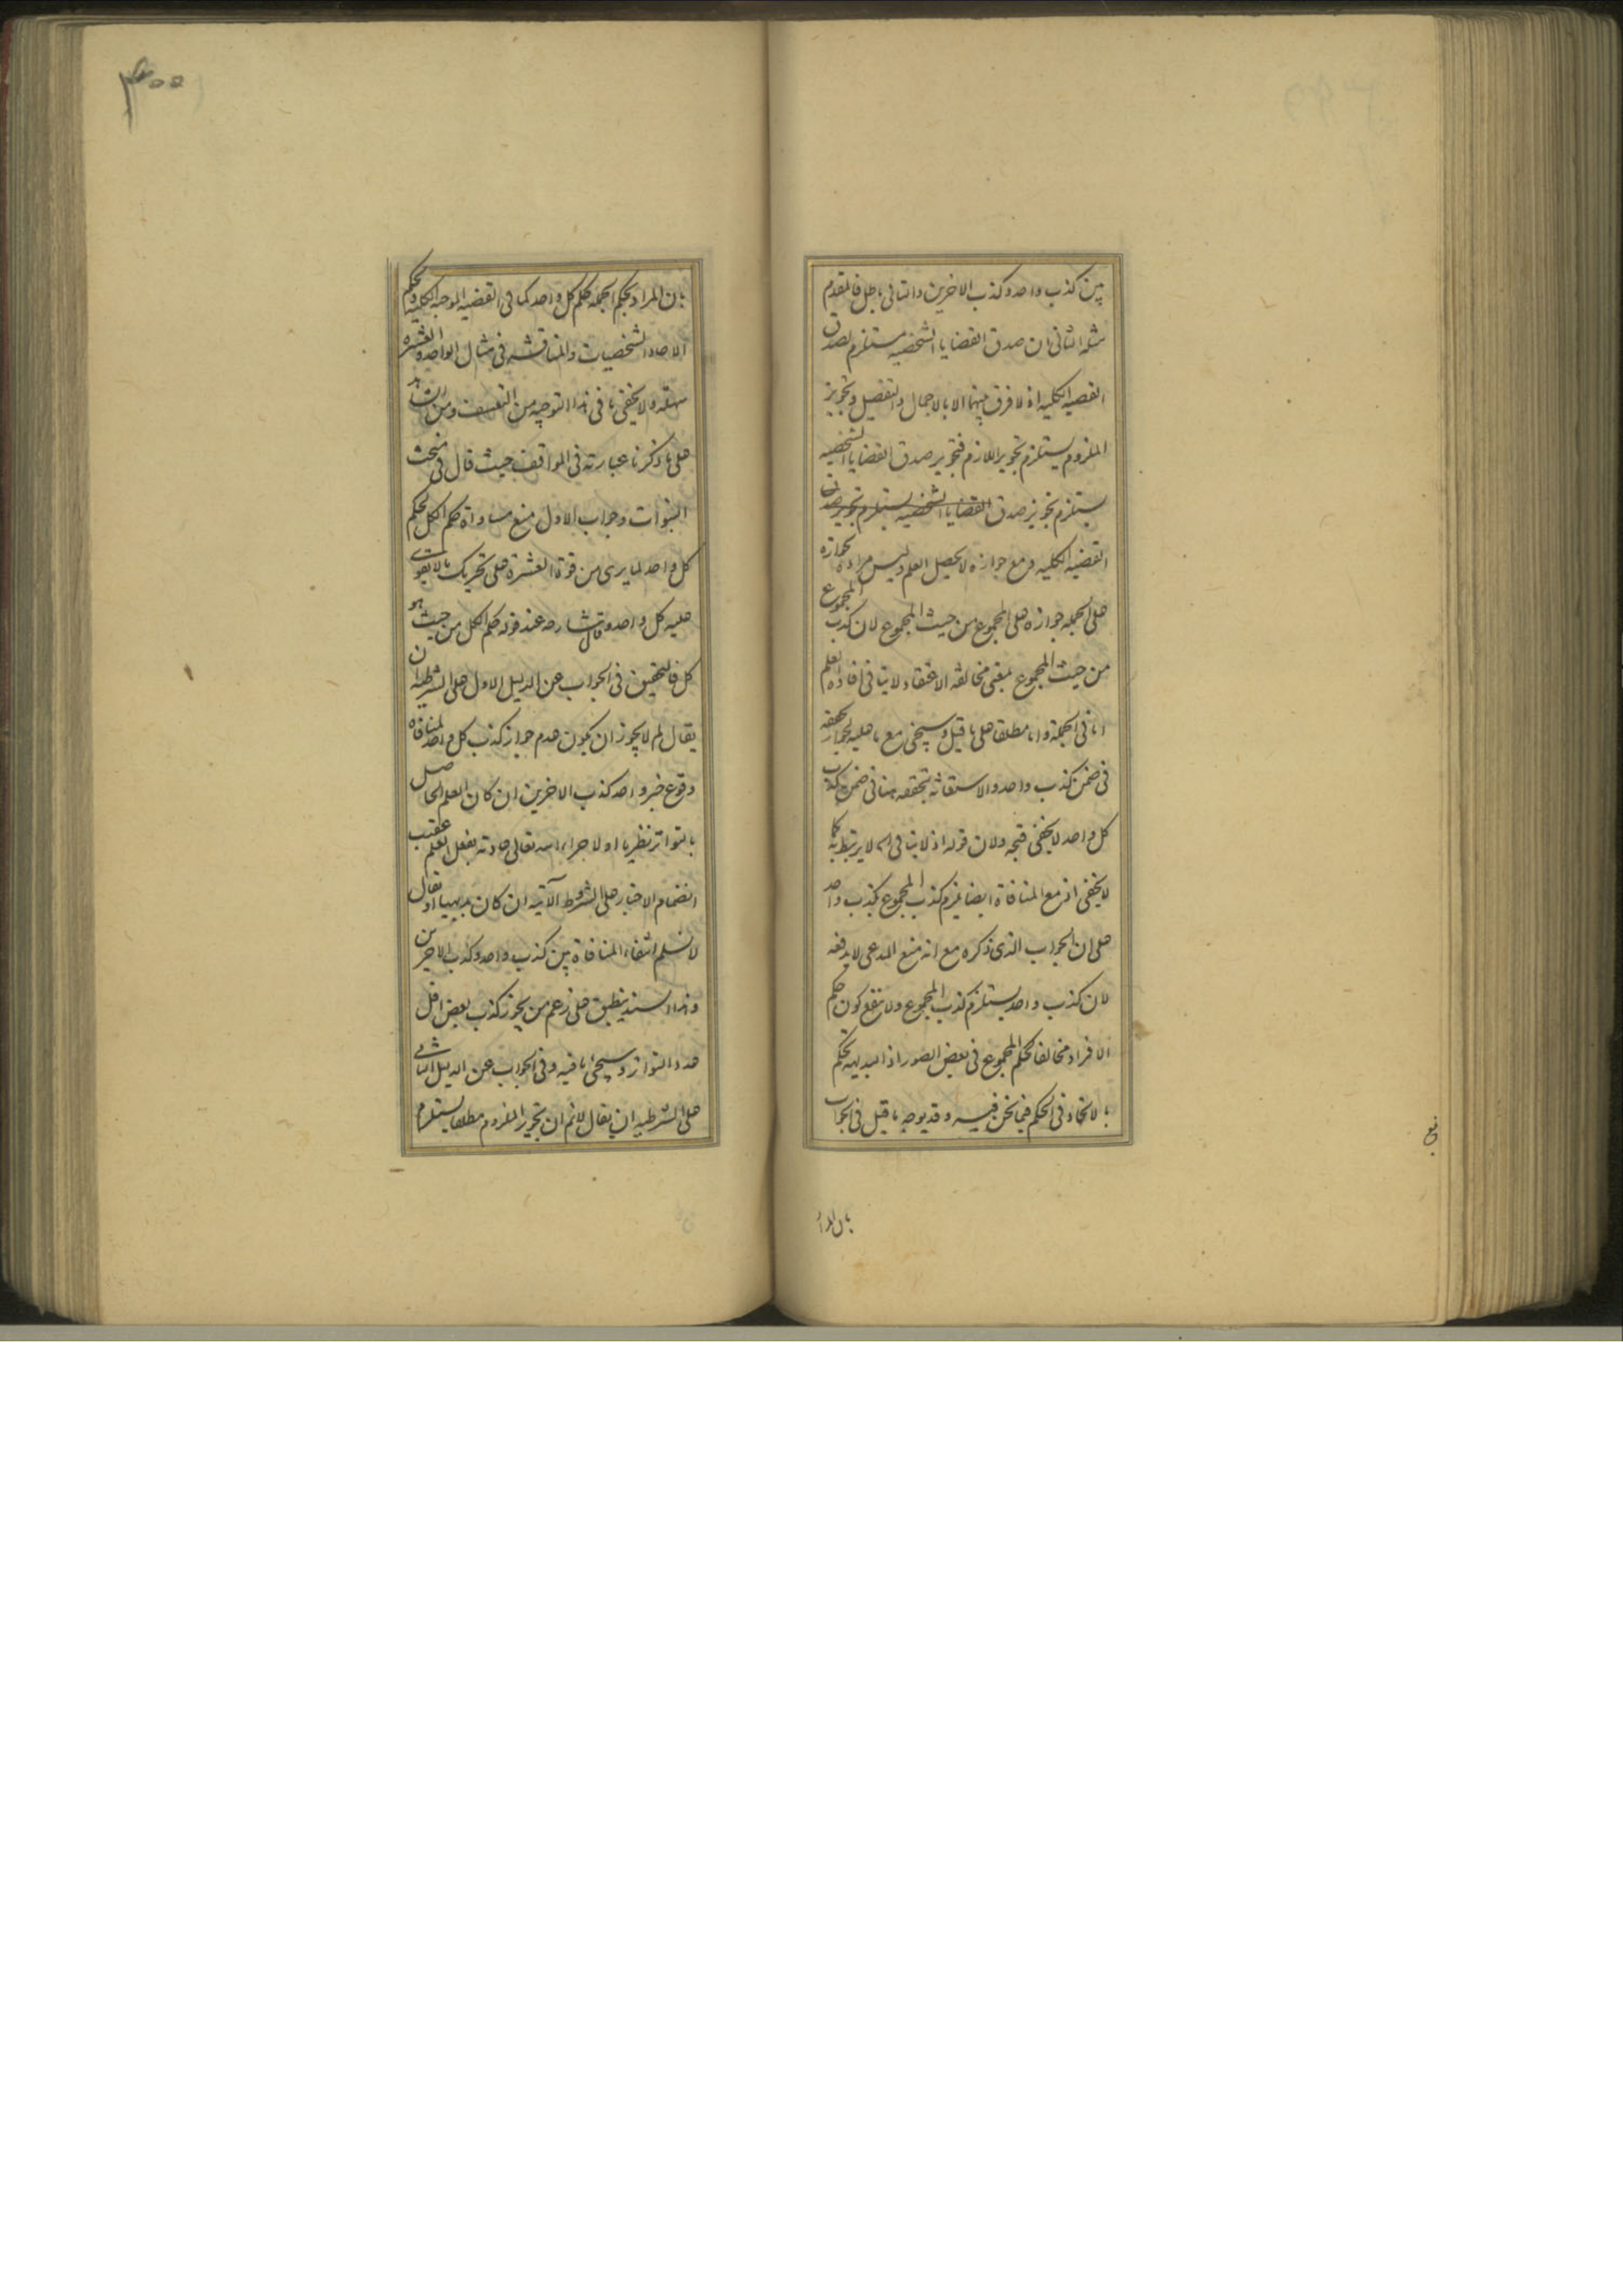 بين كذب واحد وكذب الاخرين والثانى باطل فالمقدم
مثله الثانى ان صدق القضايا الشخصيه مستلزم لصدق
القضيه الكليه اذ لا فرق بينهما الا بالاجمال والتفصيل وتجويز
الملزوم يستلزم تجويز اللازم فتجويز صدق القضايا الشخصيه
يستلزم تجويز صدق القضايا الشخصيه يستلزم تجويز صدق
القضيه الكليه ومع جوازه لا يحصل العلم وليس مراده بجوازه
على الجمله جوازه على المجموع من حيث المجموع لان كذب المجموع
من حيث المجموع بمعنى مخالفه الاعتقاد لا ينافى افاده العلم
اما فى الجملة واما مطلقا على ما قيل وسيجئ مع ما عليه لجواز تحققه
فى ضمن كذب واحد والاستغاثه بتحققه هنا فى ضمن كذب
كل واحد لا يخفى قبحه ولان قوله اذ لا ينافى الخ لا يرتبط به كما
لا يخفى اذ مع المنافاة ايضا يلزم كذب المجموع بكذب واحد
على ان الجواب الذى ذكره مع انه منع المدعى لا يدفعه
لان كذب واحد يستلزم كذب المجموع ولا ينفع كون حكم
الافراد مخالفا لحكم المجموع فى بعض الصور اذ البديهه تحكم
بالاتحاد فى الحكم فيما نحن فيه وقد يوجه ما قيل فى الجواب
بان المراد
۴۰۰
بان المراد بحكم الجمله حكم كل واحد كما فى القضيه الموجبه الكليه وبحكم
الاحاد الشخصيات والمناقشه فى مثال الواحد والعشره
سهله ولا يخفى ما فى هذا التوجيه من التعسف ومن الشاهد
على ما ذكرنا عبارته فى المواقف حيث قال فى مبحث
النبوات وجواب الاول منع مساواة حكم الكل لحكم
كل واحد لما يرى من قوة العشرة على تحريك ما لا يقوى
عليه كل واحد وقال شارحه عند قوله حكم الكل من حيث هو
كل فالتحقيق فى الجواب عن الدليل الاول على الشرطيه ان
يقال لم لا يجوز ان يكون عدم جواز كذب كل واحد لمنافاه
وقوع خبر واحد كذب الاخرين ان كان العلم الحاصل
بالتواتر نظريا او لاجراء الله تعالى عادته بفعل العلم عقيب
انضمام الاخبار على الشروط الآتيه ان كان بديهيا او يقال
لا نسلم انتفاء المنافاة بين كذب واحد وكذب الاخرين
وهذا السند ينطبق على زعم من يجوز كذب بعض اقل
عدد التواتر وسيجئ ما فيه وفى الجواب عن الدليل الثانى
على الشرطيه ان يقال لا نم ان تجويز الملزوم مطلقا يستلزم